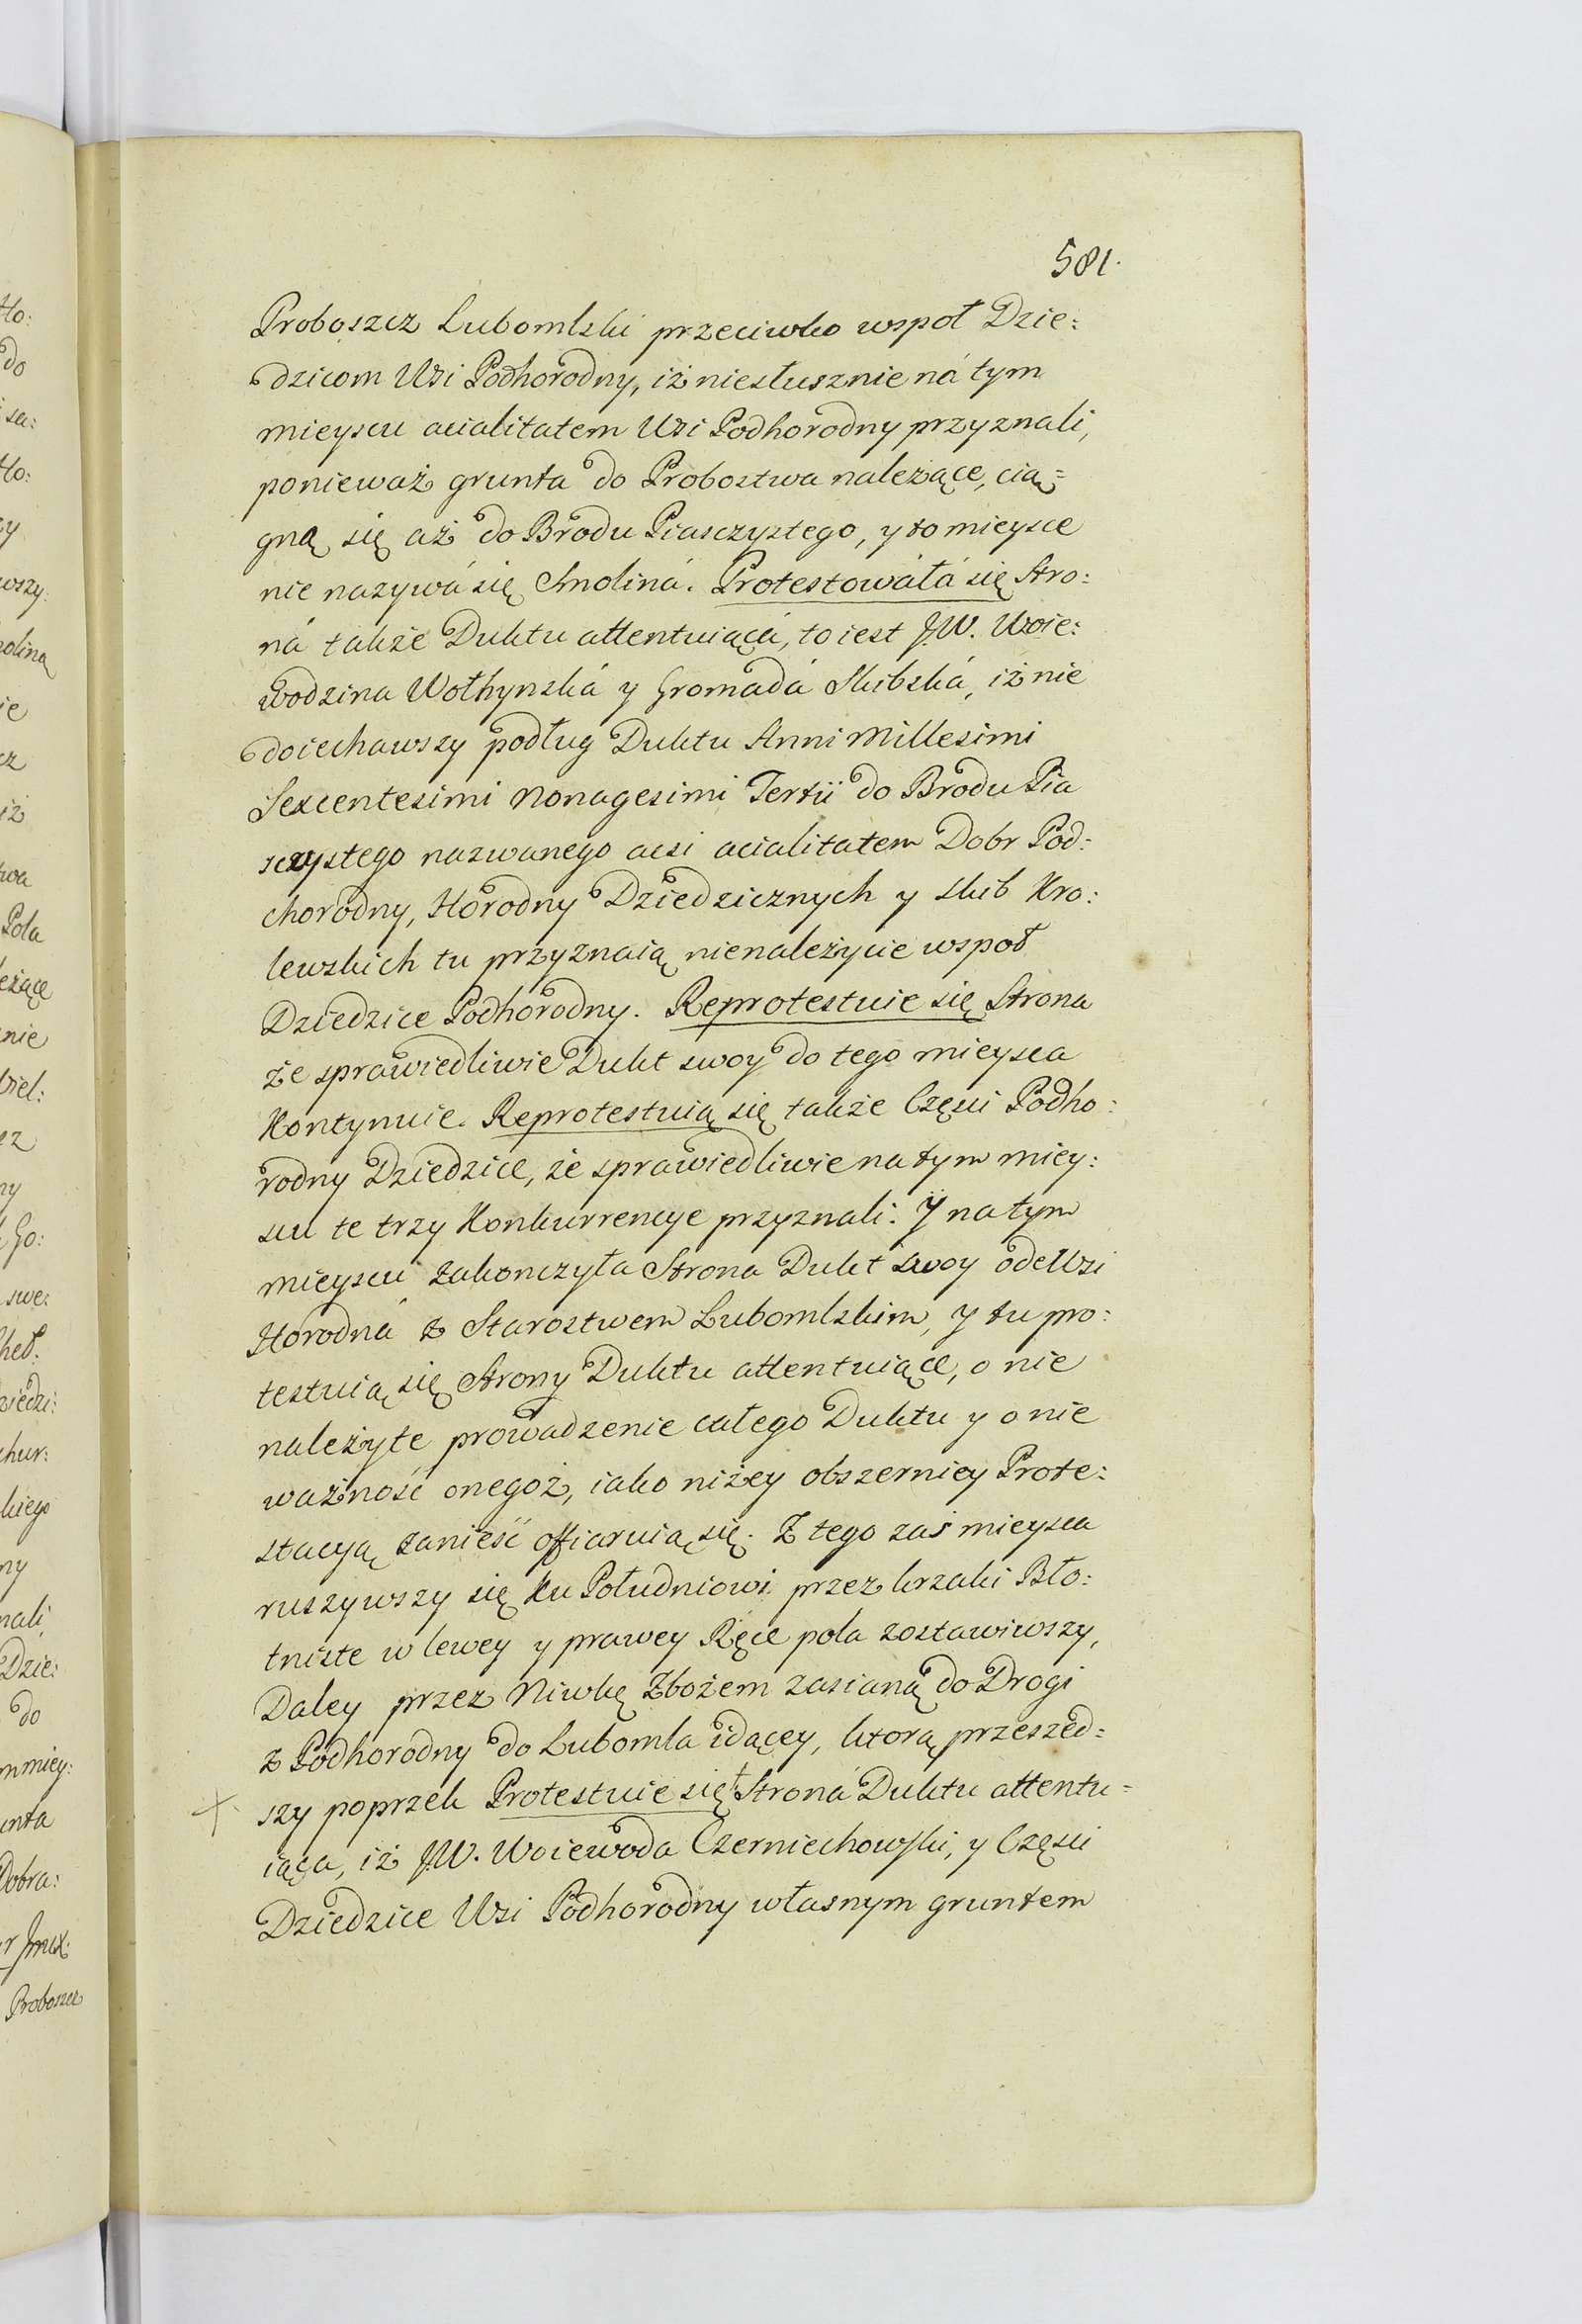 581.
Proboszcz Lubomlski przeciwko wspoł Dzie:
dzicom Wsi Podhorodny, iż niesłusznie ná tym
mieyscu acialitatem Wsi Podhorodny przyznali,
ponieważ grunta do Probostwa należące, cią=
gną się aż do Brodu Piasczystego, y to mieysce
nie nazywá się Smoliná. Protestowáłá się Stro:
ná także Duktu attentuiącá, to iest J.W. Woie:
wodzina Wołhynská y Gromadá Skibská, iż nie
doiechawszy podług Duktu Anni Millesimi
Sexcentesimi Nonagesimi Tertii do Brodu Pia
sczystego nazwanego acsi acialitatem Dobr Pod:
chorodny, Horodny Dziedzicznych y Skib Kro:
lewskich tu przyznaią nienależycie wspoł
Dziedzice Podhorodny. Reprotestuie się Strona
że sprawiedliwie Dukt swoy do tego mieysca
Kontynuie. Reprotestuią się także Części Podho:
rodny Dziedzice, że sprawiedliwie na tym miey:
scu te trzy Konkurrencye przyznali. Y na tym
mieyscu zakonczyła Strona Dukt swoy ode Wsi
Horodná z Starostwem Lubomlskim, y tu pro:
testuią się Strony Duktu attentuiące, o nie
należyte prowadzenie całego Duktu y o nie
ważność onegoż, iako niżey obszerniey Prote:
stacyą zanieść offiaruią się. Z tego zaś mieysca
ruszywszy się ku Południowi przez krzaki Bło:
tniste w lewey y prawey Ręce pola zostawiwszy,
Daley przez Niwkę Zbożem zasianą do Drogi
z Podhorodny do Lubomla idącey, ktorą przeszed:
szy poprzek Protestuie się Stroná Duktu attentu=
iąca, iż J.W. Woiewoda Czerniechowski, y Części
Dziedzice Wsi Podhorodny własnym gruntem